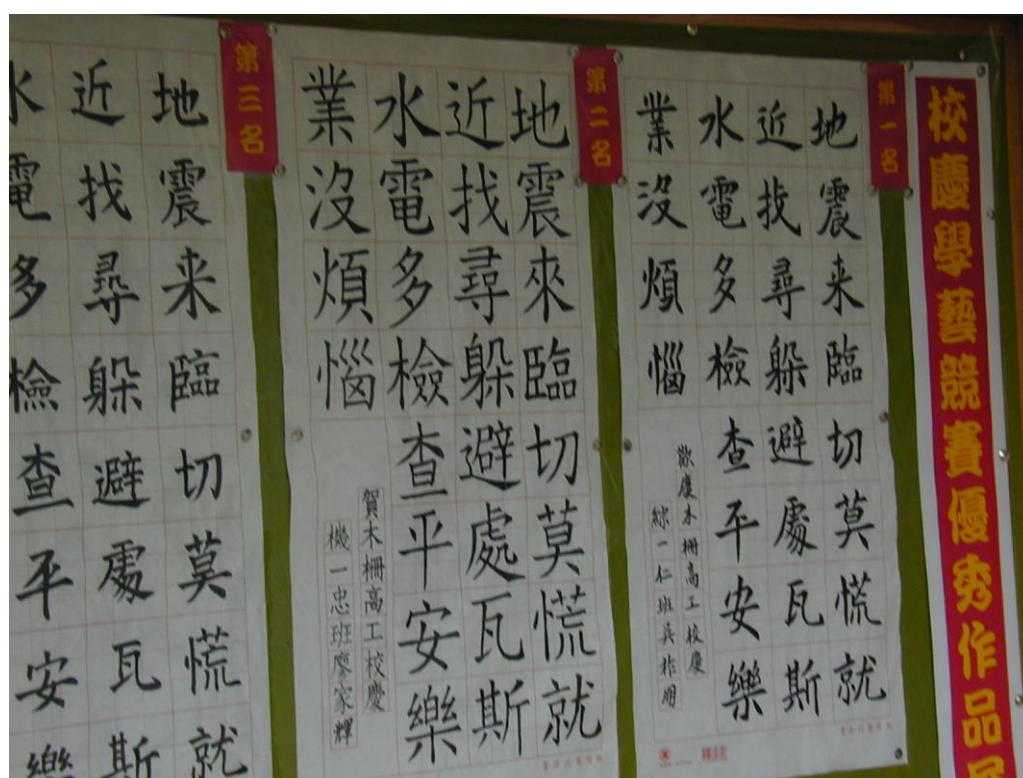 校慶學藝競賽優秀作品展
第一名
地震来臨切莫慌就
近找尋躲避處瓦斯
水電多檢查平安樂
業沒煩惱
歡慶木柵高工校慶
綜一仁班吳
第二名
地震來臨切莫慌就
近找尋躲避處瓦斯
水電多檢查平安樂
業沒煩惱
賀木柵高工校慶
機一忠班廖家輝
第三名
地震来臨切莫慌就
近找尋躲避處瓦斯
水電多檢查平安樂